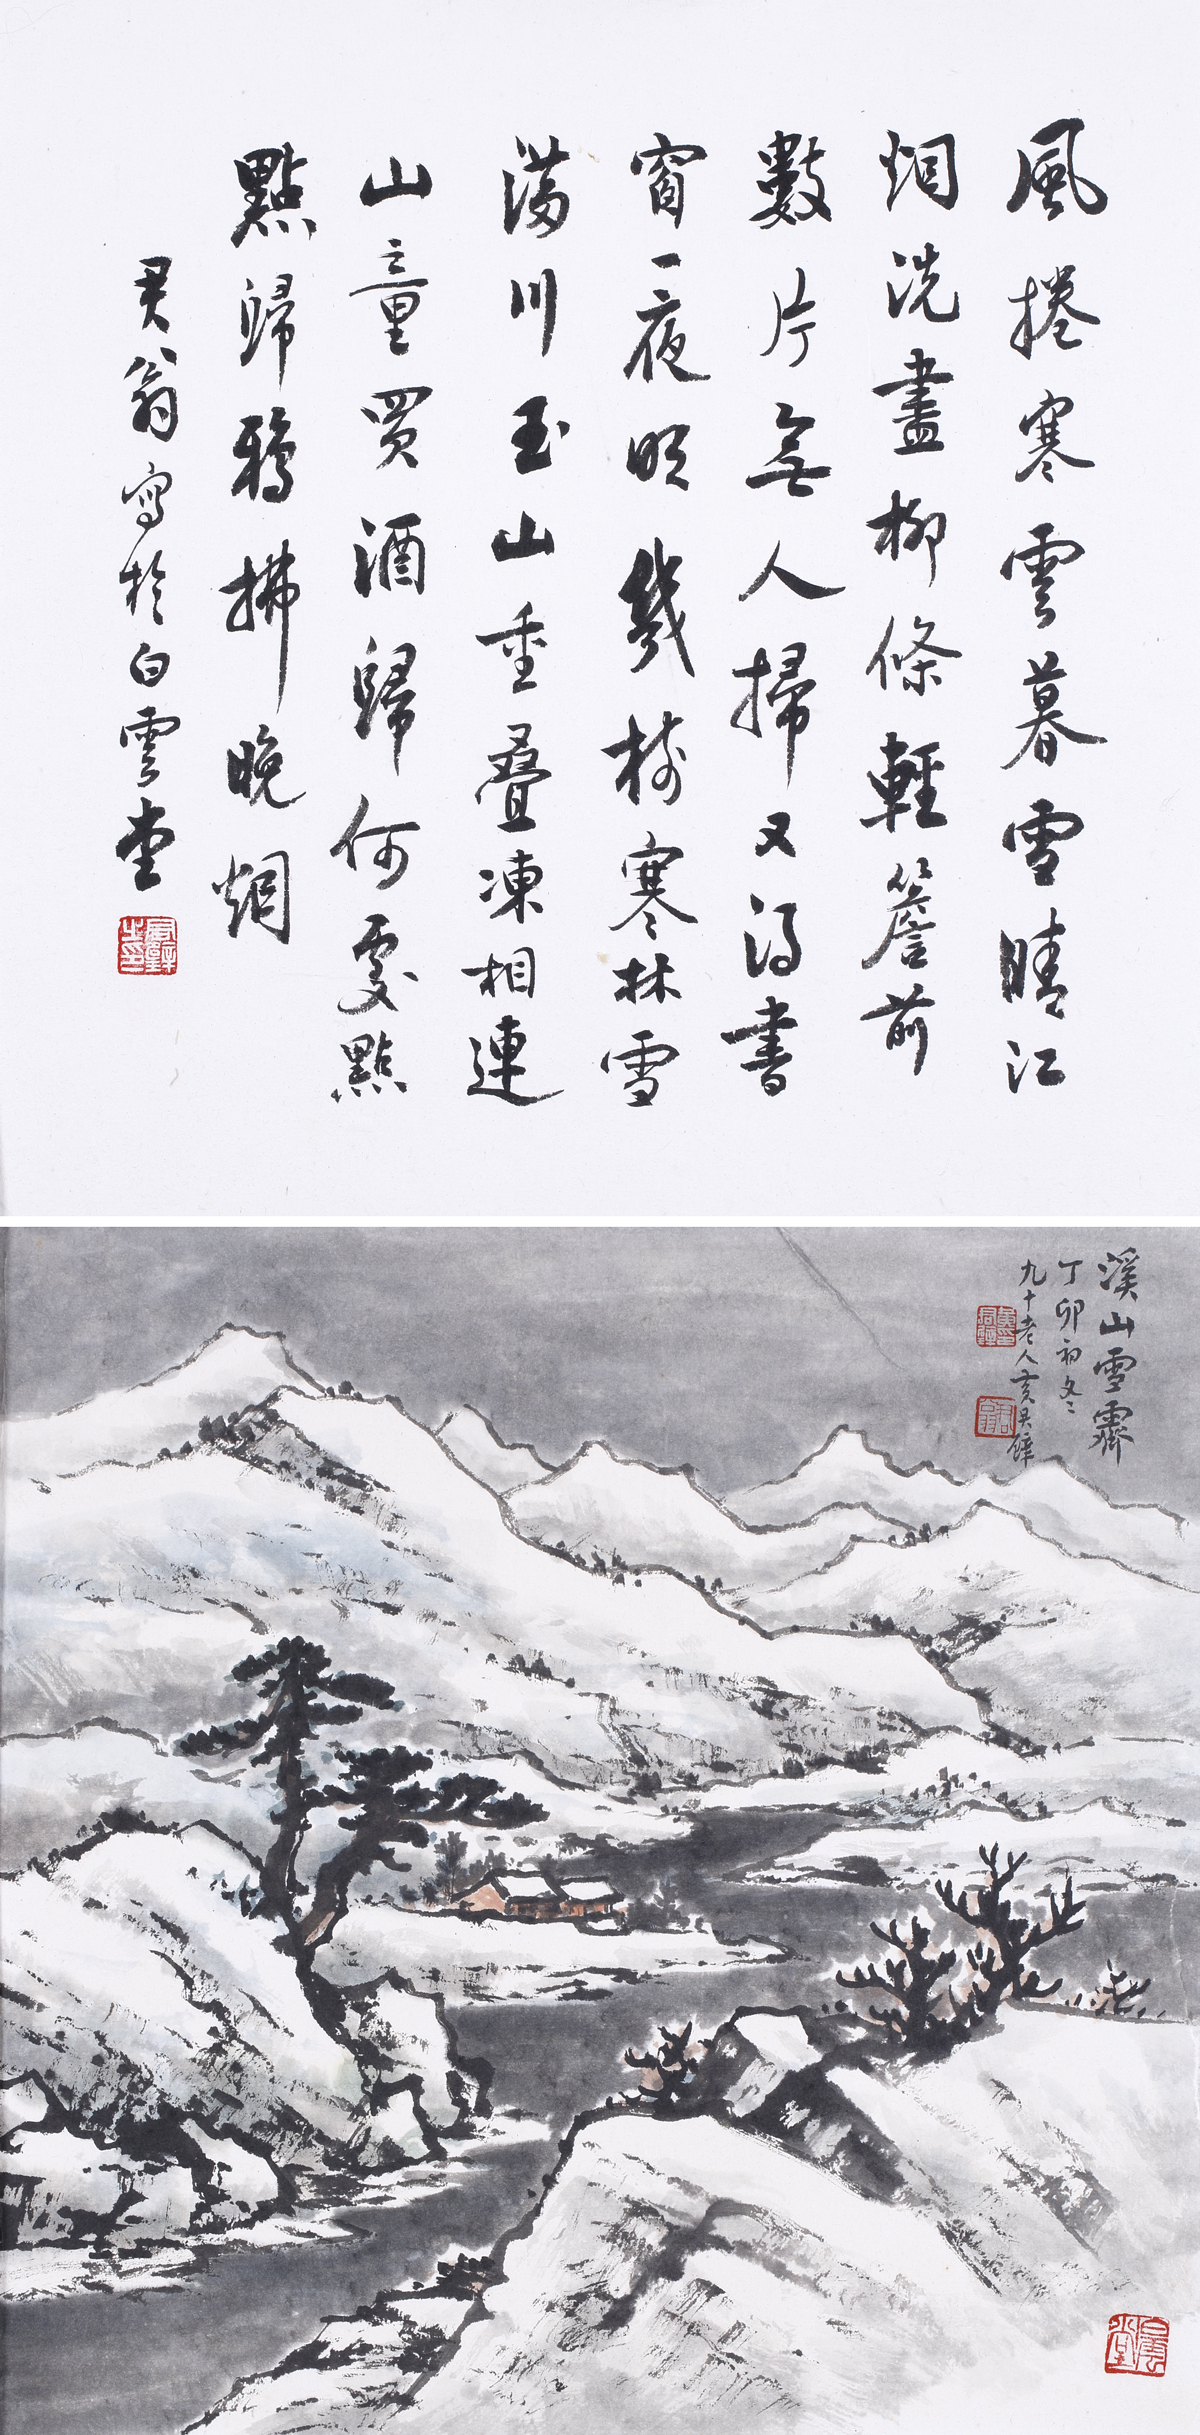 風捲寒雲暮雪晴江
烟洗盡柳條輕簷前
數片無人掃又得書
窗一夜明幾樹寒林雪
滿川玉山重疊凍相連
山童買酒歸何處點
點歸鴉拂晚烟
君翁寫於白雲堂
溪山雪霽
丁卯初冬
九十老人黃君璧
白雲堂